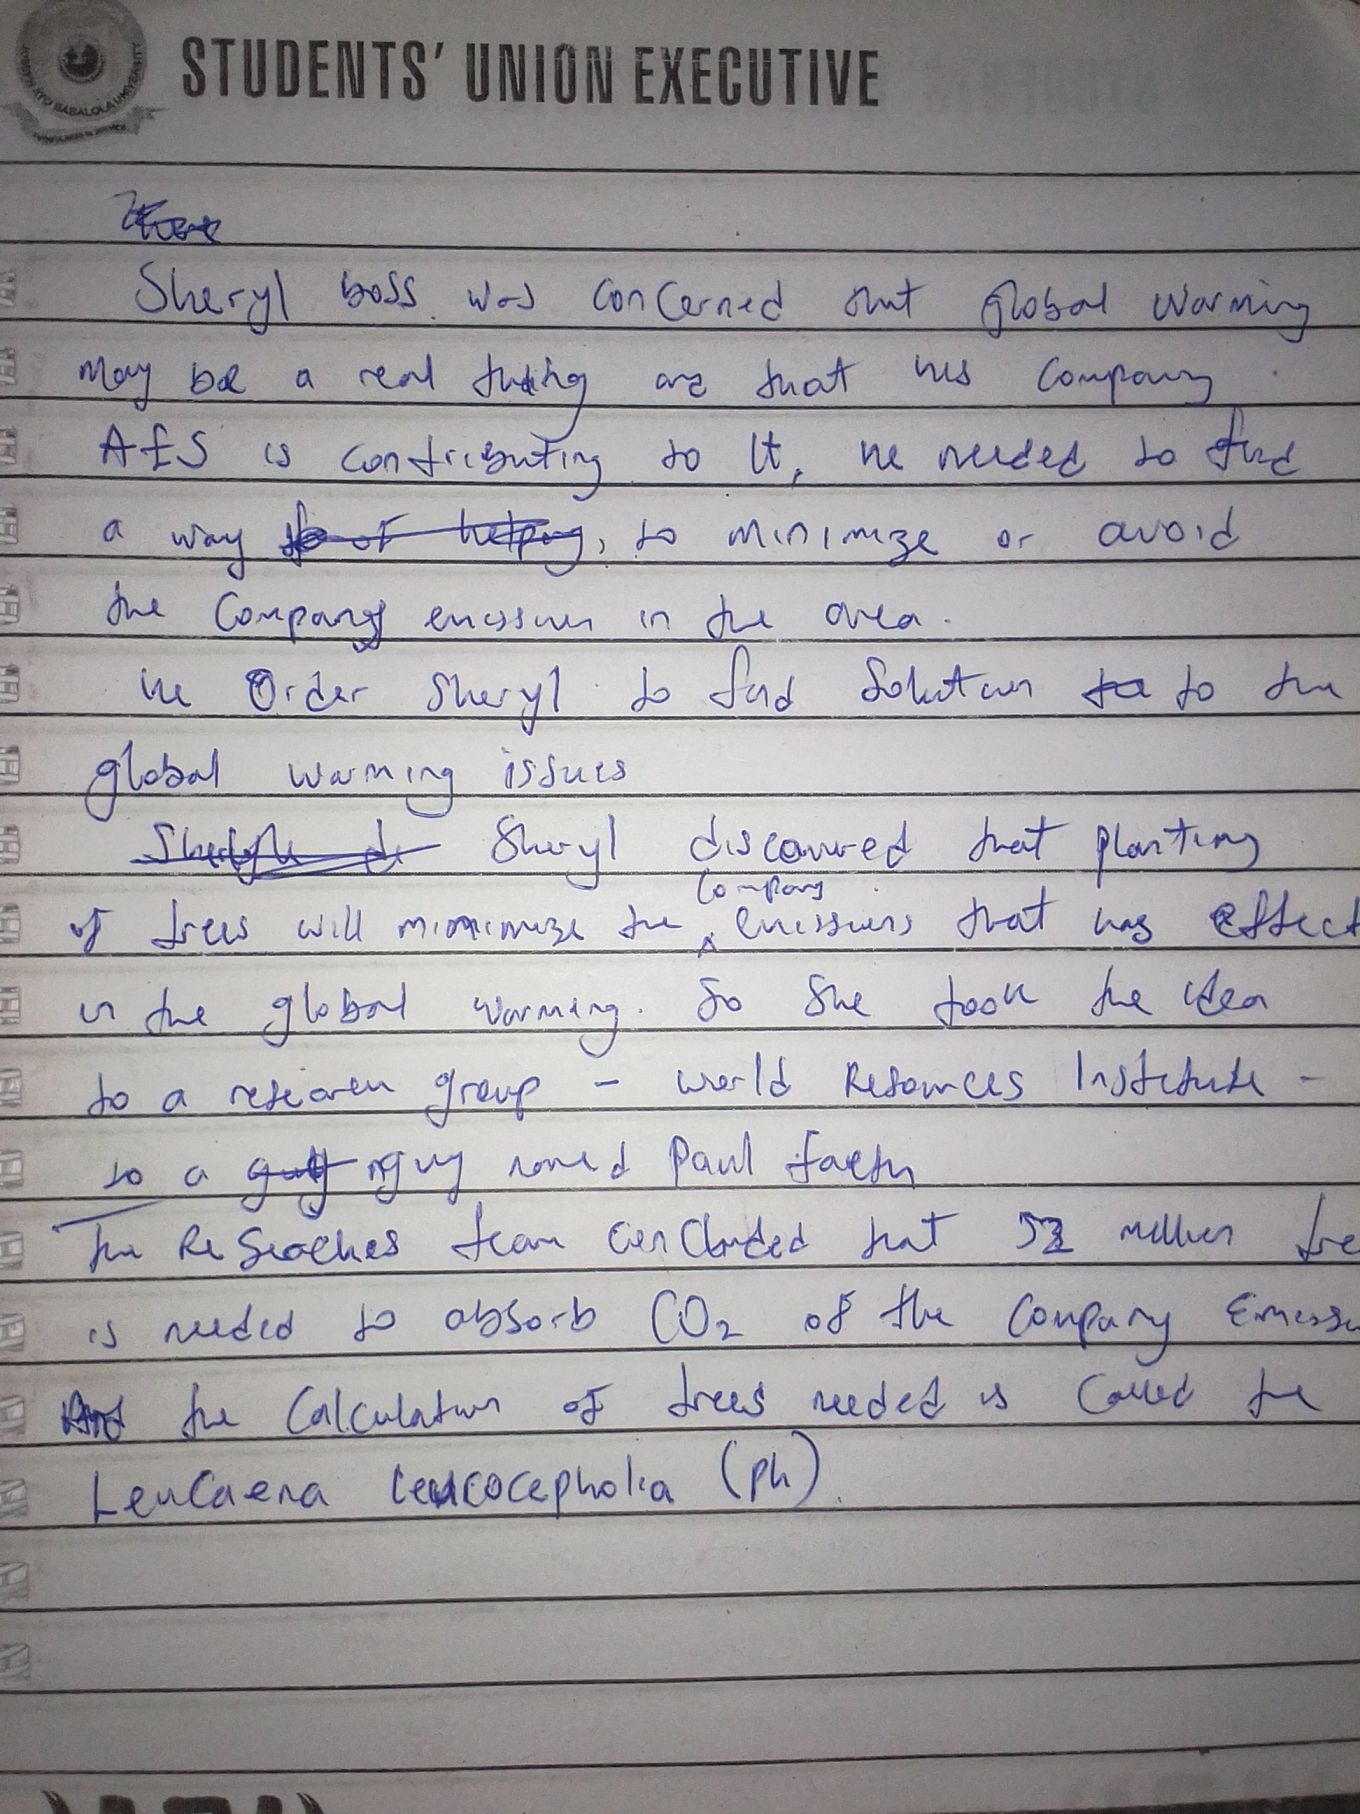 JOSEPH AYO BABALOLA UNIVERSITY
STUDENTS' UNION EXECUTIVE
Sheryl boss was concerned that global warming
may be a real thing and that his company
AES is contributing to it, he needed to find
a way to of helping, to minimize or avoid
the company emission in the area.
He Order Sheryl to find Solution to to the
global warming issues
Sheryl Sheryl discovered that planting
of trees will minimize the company emissions that has effect
in the global warming. So She took the idea
to a research group - world Resources Institute -
to a guy named Paul faeth
The Reseaches team Concluded that 52 million tre
is needed to absorb CO2 of the Company Emissi
And the Calculation of trees needed is Called the
Leucaena leucocephola (ph).